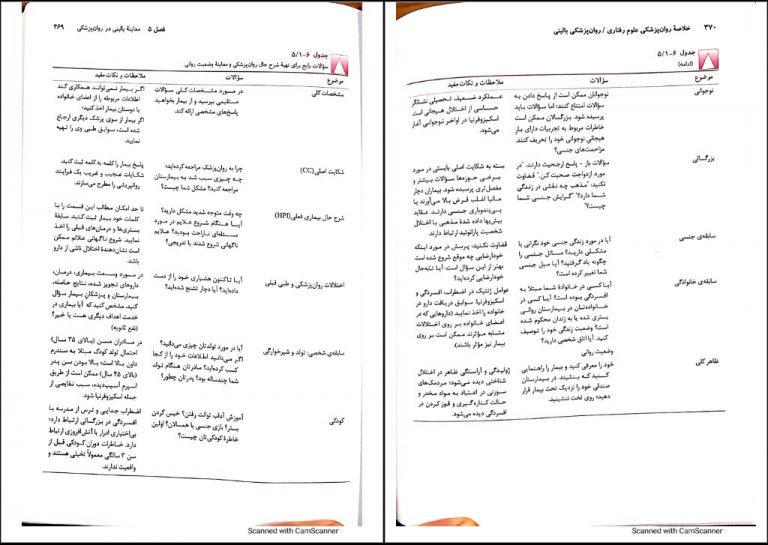 فصل ۵ معاینهٔ بالینی در روان‌پزشکی ۳۶۹
جدول ۶-۵/۱
سؤالات رایج برای تهیهٔ شرح حال روان‌پزشکی و معاینهٔ وضعیت روانی
موضوع
سؤالات
ملاحظات و نکات مفید
مشخصات کلی
در مورد مشخصات کلی سؤالات
مستقیمی بپرسید و از بیمار بخواهید
پاسخ‌های مشخصی ارائه کند.
اگر بیمار نمی‌تواند همکاری کند
اطلاعات مربوطه را از اعضای خانواده
یا دوستان بیمار اخذ کنید؛
اگر بیمار از سوی پزشک دیگری ارجاع
شده است، سوابق طبی وی را تهیه
نمایید.
شکایت اصلی (CC)
چرا به روان‌پزشک مراجعه کرده‌اید؛
چه چیزی سبب شد به بیمارستان
مراجعه کنید؟ مشکل شما چیست؟
پاسخ بیمار را کلمه به کلمه ثبت کنید.
شکایات عجیب و غریب یک فرایند
روانپریشی را مطرح می‌سازند.
شرح حال بیماری فعلی (HPI)
چه وقت متوجه شدید مشکل دارید؟
آیا هنگام شروع علایم در مورد
مسئله‌ای ناراحت بودید؟ آیا علایم
ناگهانی شروع شدند یا تدریجی؟
تا حد امکان مطالب این قسمت را با
کلمات خود بیمار ثبت کنید. سابقهٔ
بستری‌ها و درمان‌های قبلی را اخذ
نمایید. شروع ناگهانی علائم ممکن
است نشان‌دهندهٔ اختلال ناشی از دارو
باشد.
اختلالات روان‌پزشکی و طبی قبلی
آیا تاکنون هشیاری خود را از دست
داده‌اید؟ آیا دچار تشنج شده‌اید؟
در مورد وسعت بیماری، درمان،
داروهای تجویز شده، نتایج حاصله،
بیمارستان و پزشکان بیمار سؤال
کنید. مشخص کنید که آیا بیماری در
خدمت اهداف دیگری هست یا خیر؟
(نفع ثانویه)
سابقه‌ی شخصی: تولد و شیرخوارگی
آیا در مورد تولدتان چیزی می‌دانید؟
اگر می‌دانید اطلاعات خود را از کجا
کسب کرده‌اید؟ مادرتان هنگام تولد
شما چندساله بود؟ پدرتان چطور؟
در مادران مسن (بالای ۳۵ سال)
احتمال تولد کودک مبتلا به سندرم
داون بالا است؛ بالا بودن سن پدر
(بالای ۴۵ سال) ممکن است از طریق
اسپرم آسیب‌دیده، سبب نقایصی از
جمله اسکیزوفرنیا شود.
کودکی
آموزش آداب توالت رفتن؟ خیس کردن
بستر؟ بازی جنسی با همسالان؟ اولین
خاطرهٔ کودکی‌تان چیست؟
اضطراب جدایی و ترس از مدرسه با
افسردگی در بزرگسالی ارتباط دارد؛
بی‌اختیاری ادرار با آتش‌افروزی ارتباط
دارد. خاطرات دوران کودکی قبل از
سن ۳ سالگی معمولاً تخیلی هستند و
واقعیت ندارند.
Scanned with CamScanner
۳۷۰ خلاصهٔ روان‌پزشکی علوم رفتاری / روان‌پزشکی بالینی
جدول ۶-۵/۱
(ادامه)
موضوع
سؤالات
ملاحظات و نکات مفید
نوجوانی
نوجوانان ممکن است از پاسخ دادن به
سؤالات امتناع کنند؛ اما سؤالات باید
پرسیده شود. بزرگسالان ممکن است
خاطرات مربوط به تجربیات دارای بار
هیجانی نوجوانی خود را تحریف کنند.
مزاحمت‌های جنسی؟
عملکرد ضعیف تحصیلی نشانگر
حساسی از اختلال هیجانی است
اسکیزوفرنیا در اواخر نوجوانی آغاز
می‌شود.
بزرگسالی
سؤالات باز - پاسخ ارجحیت دارند. "در
مورد ازدواجت صحبت کن." قضاوت
نکنید؛ "مذهب چه نقشی در زندگی
شما دارد؟" "گرایش جنسی شما
چیست؟"
بسته به شکایت اصلی بایستی در مورد
برخی حوزه‌ها سؤالات بیشتر و
مفصل‌تری پرسیده شود. بیماران دچار
مانیا اغلب قرض بالا می‌آورند یا
بی‌بندوباری جنسی دارند. عقاید
بیش‌بها داده شدهٔ مذهبی با اختلال
شخصیت پارانوئید ارتباط دارند.
سابقه‌ی جنسی
آیا در مورد زندگی جنسی خود نگرانی یا
مشکلی دارید؟ مسائل جنسی را
چگونه یاد گرفتید؟ آیا میل جنسی
شما تغییر کرده است؟
قضاوت نکنید؛ پرسش در مورد اینکه
خودارضایی چه موقع شروع شده است
بهتر از این سؤال است: آیا تابه‌حال
خودارضایی کرده‌اید؟
سابقه‌ی خانوادگی
آیا کسی در خانوادهٔ شما مبتلا به
افسردگی بوده است؟ آیا کسی در
خانواده‌تان در بیمارستان روانی
بستری شده یا به زندان محکوم شده
است؟ وضعیت زندگی خود را توصیف
کنید. آیا اتاق شخصی دارید؟
عوامل ژنتیک در اضطراب، افسردگی و
اسکیزوفرنیا. سوابق دریافت دارو در
خانواده را اخذ نمایید (داروهایی که در
اعضای خانواده بر روی اختلالات
مشابه مؤثرند ممکن است بر روی
بیمار نیز مؤثر باشند).
وضعیت روانی
ظاهر کلی
خود را معرفی کنید و بیمار را راهنمایی
کنید که بنشیند. در بیمارستان
صندلی خود را نزدیک تخت بیمار قرار
دهید؛ روی تخت ننشینید.
ژولیدگی و آراستگی ظاهر در اختلال
شناختی دیده می‌شود؛ مردمک‌های
سوزنی در اعتیاد به مواد مخدر و
حالت کناره‌گیری و قوز کردن در
افسردگی دیده می‌شود.
Scanned with CamScanner